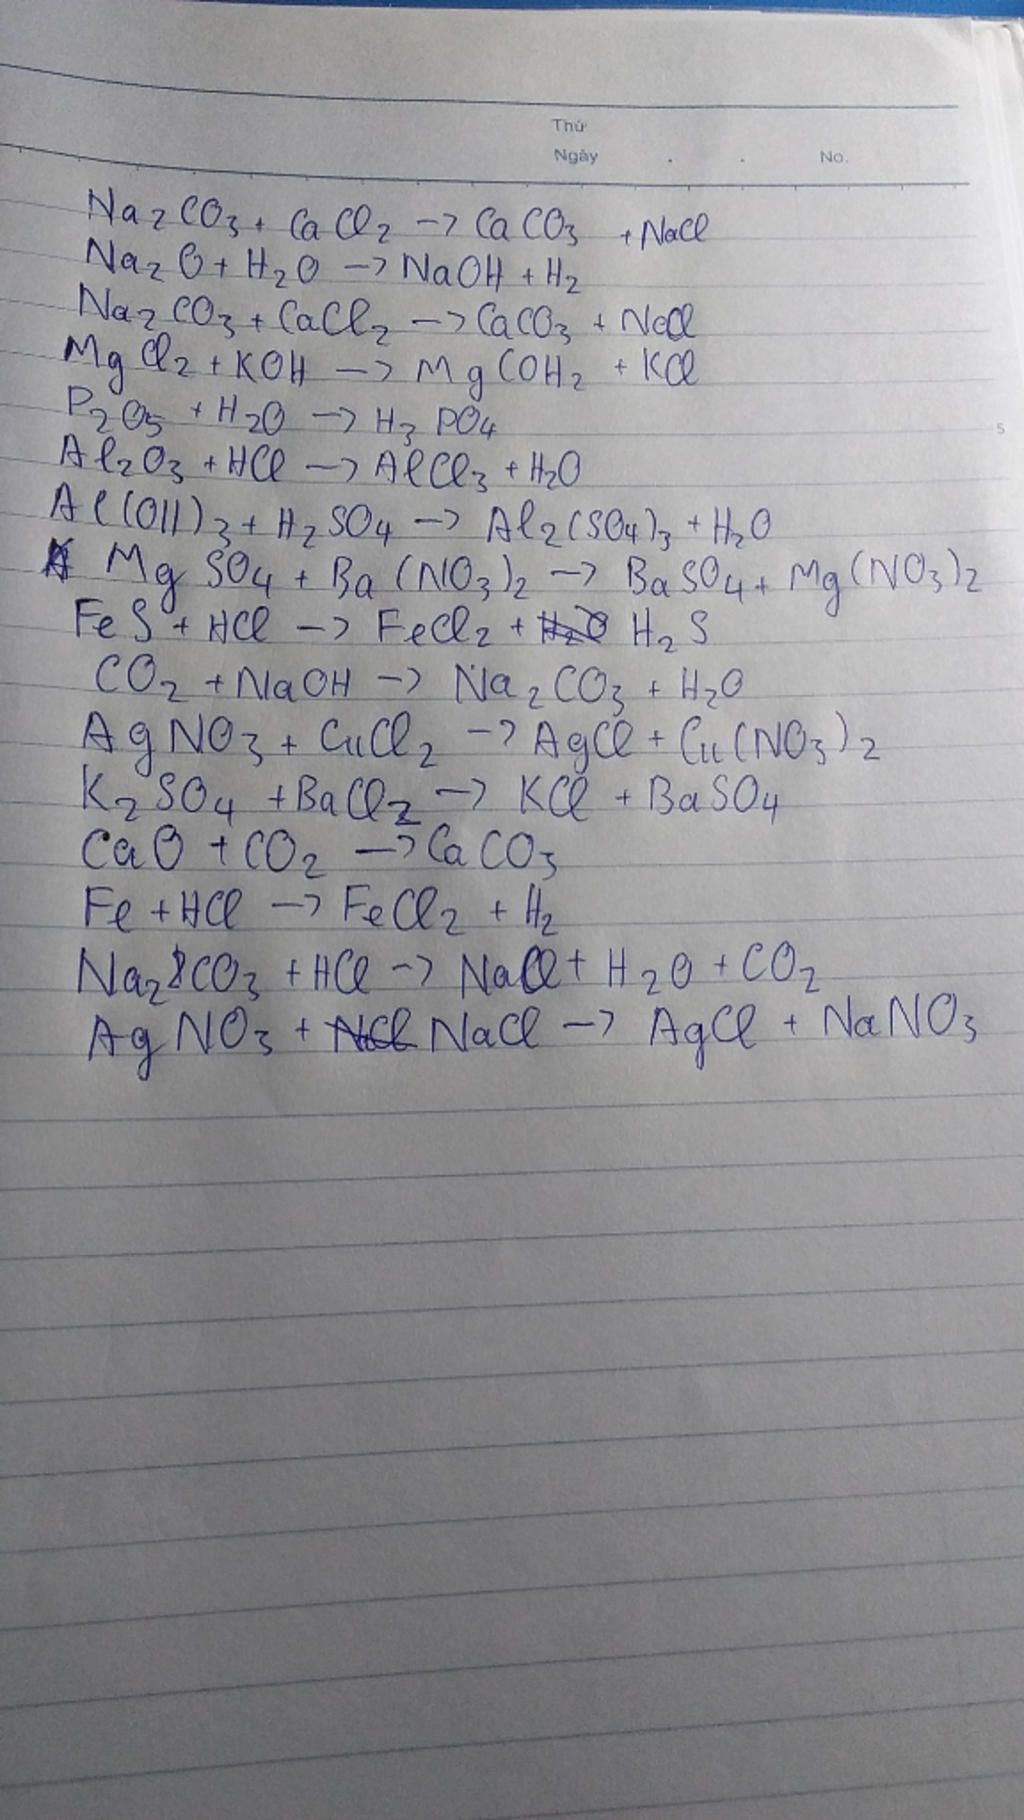 Thứ
Ngày . . No.
Na₂CO₃ + CaCl₂ -> CaCO₃ + NaCl
Na₂O + H₂O -> NaOH + H₂
Na₂CO₃ + CaCl₂ -> CaCO₃ + NaCl
MgCl₂ + KOH -> Mg(OH₂ + KCl
P₂O₅ + H₂O -> H₃PO₄
5
Al₂O₃ + HCl -> AlCl₃ + H₂O
Al(OH)₃ + H₂SO₄ -> Al₂(SO₄)₃ + H₂O
MgSO₄ + Ba(NO₃)₂ -> BaSO₄ + Mg(NO₃)₂
FeS + HCl -> FeCl₂ + H₂S
CO₂ + NaOH -> Na₂CO₃ + H₂O
AgNO₃ + CuCl₂ -> AgCl + Cu(NO₃)₂
K₂SO₄ + BaCl₂ -> KCl + BaSO₄
CaO + CO₂ -> CaCO₃
Fe + HCl -> FeCl₂ + H₂
Na₂CO₃ + HCl -> NaCl + H₂O + CO₂
AgNO₃ + NaCl -> AgCl + NaNO₃